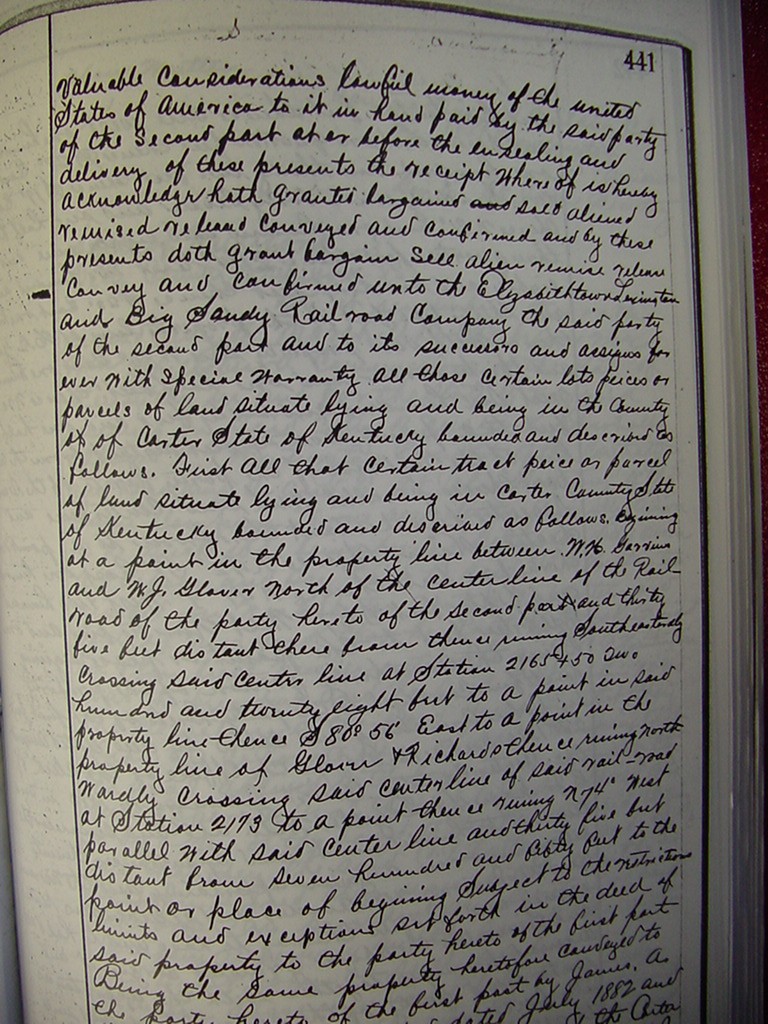 441
Valuable Considerations lawful money of the united
States of America to it in hand paid by the said party
of the Second part at or before the ensealing and
delivery of these presents the receipt Where of is hereby
acknowledge hath granted bargained and sold aliened
remised released Conveyed and Confirmed and by these
presents doth grant bargain Sell alien remise release
Convey and confirmed unto the Elizabethtown Lexington
and Big Sandy Rail road Company the said party
of the second part and to its successors and assigns for
ever With Special Warranty all those Certain lots peices or
parcels of land situate lying and being in the County
of Carter State of Kentucky bounded and described as
follows. First all that Certain tract peice or parcel
of land situate lying and being in Carter County State
of Kentucky bounded and described as follows. Begining
at a point in the property line between W.H.
and W.J. Glover North of the center line of the Rail-
road of the party hereto of the second part and thirty
five feet distant there from thence runing Southeasterdly
Crossing said center line at Station 2165+50 two
hundred and twenty eight feet to a point in said
property line thence S 80° 56' East to a point in the
property line of Glover & Richards thence runing North
Wardly Crossing said center line of said rail-road
at Station 2173 to a point thence runing N 74° West
parallel With said Center line and thirty five feet
distant from seven hundred and fifty feet to the
point or place of begining Subject to the restrictions
limits and exceptions set forth in the deed of
said property to the party hereto of the first part
Being the same property heretofore conveyed to
the party hereto of the first part by James. A.
dated July 1882 and
the Carter